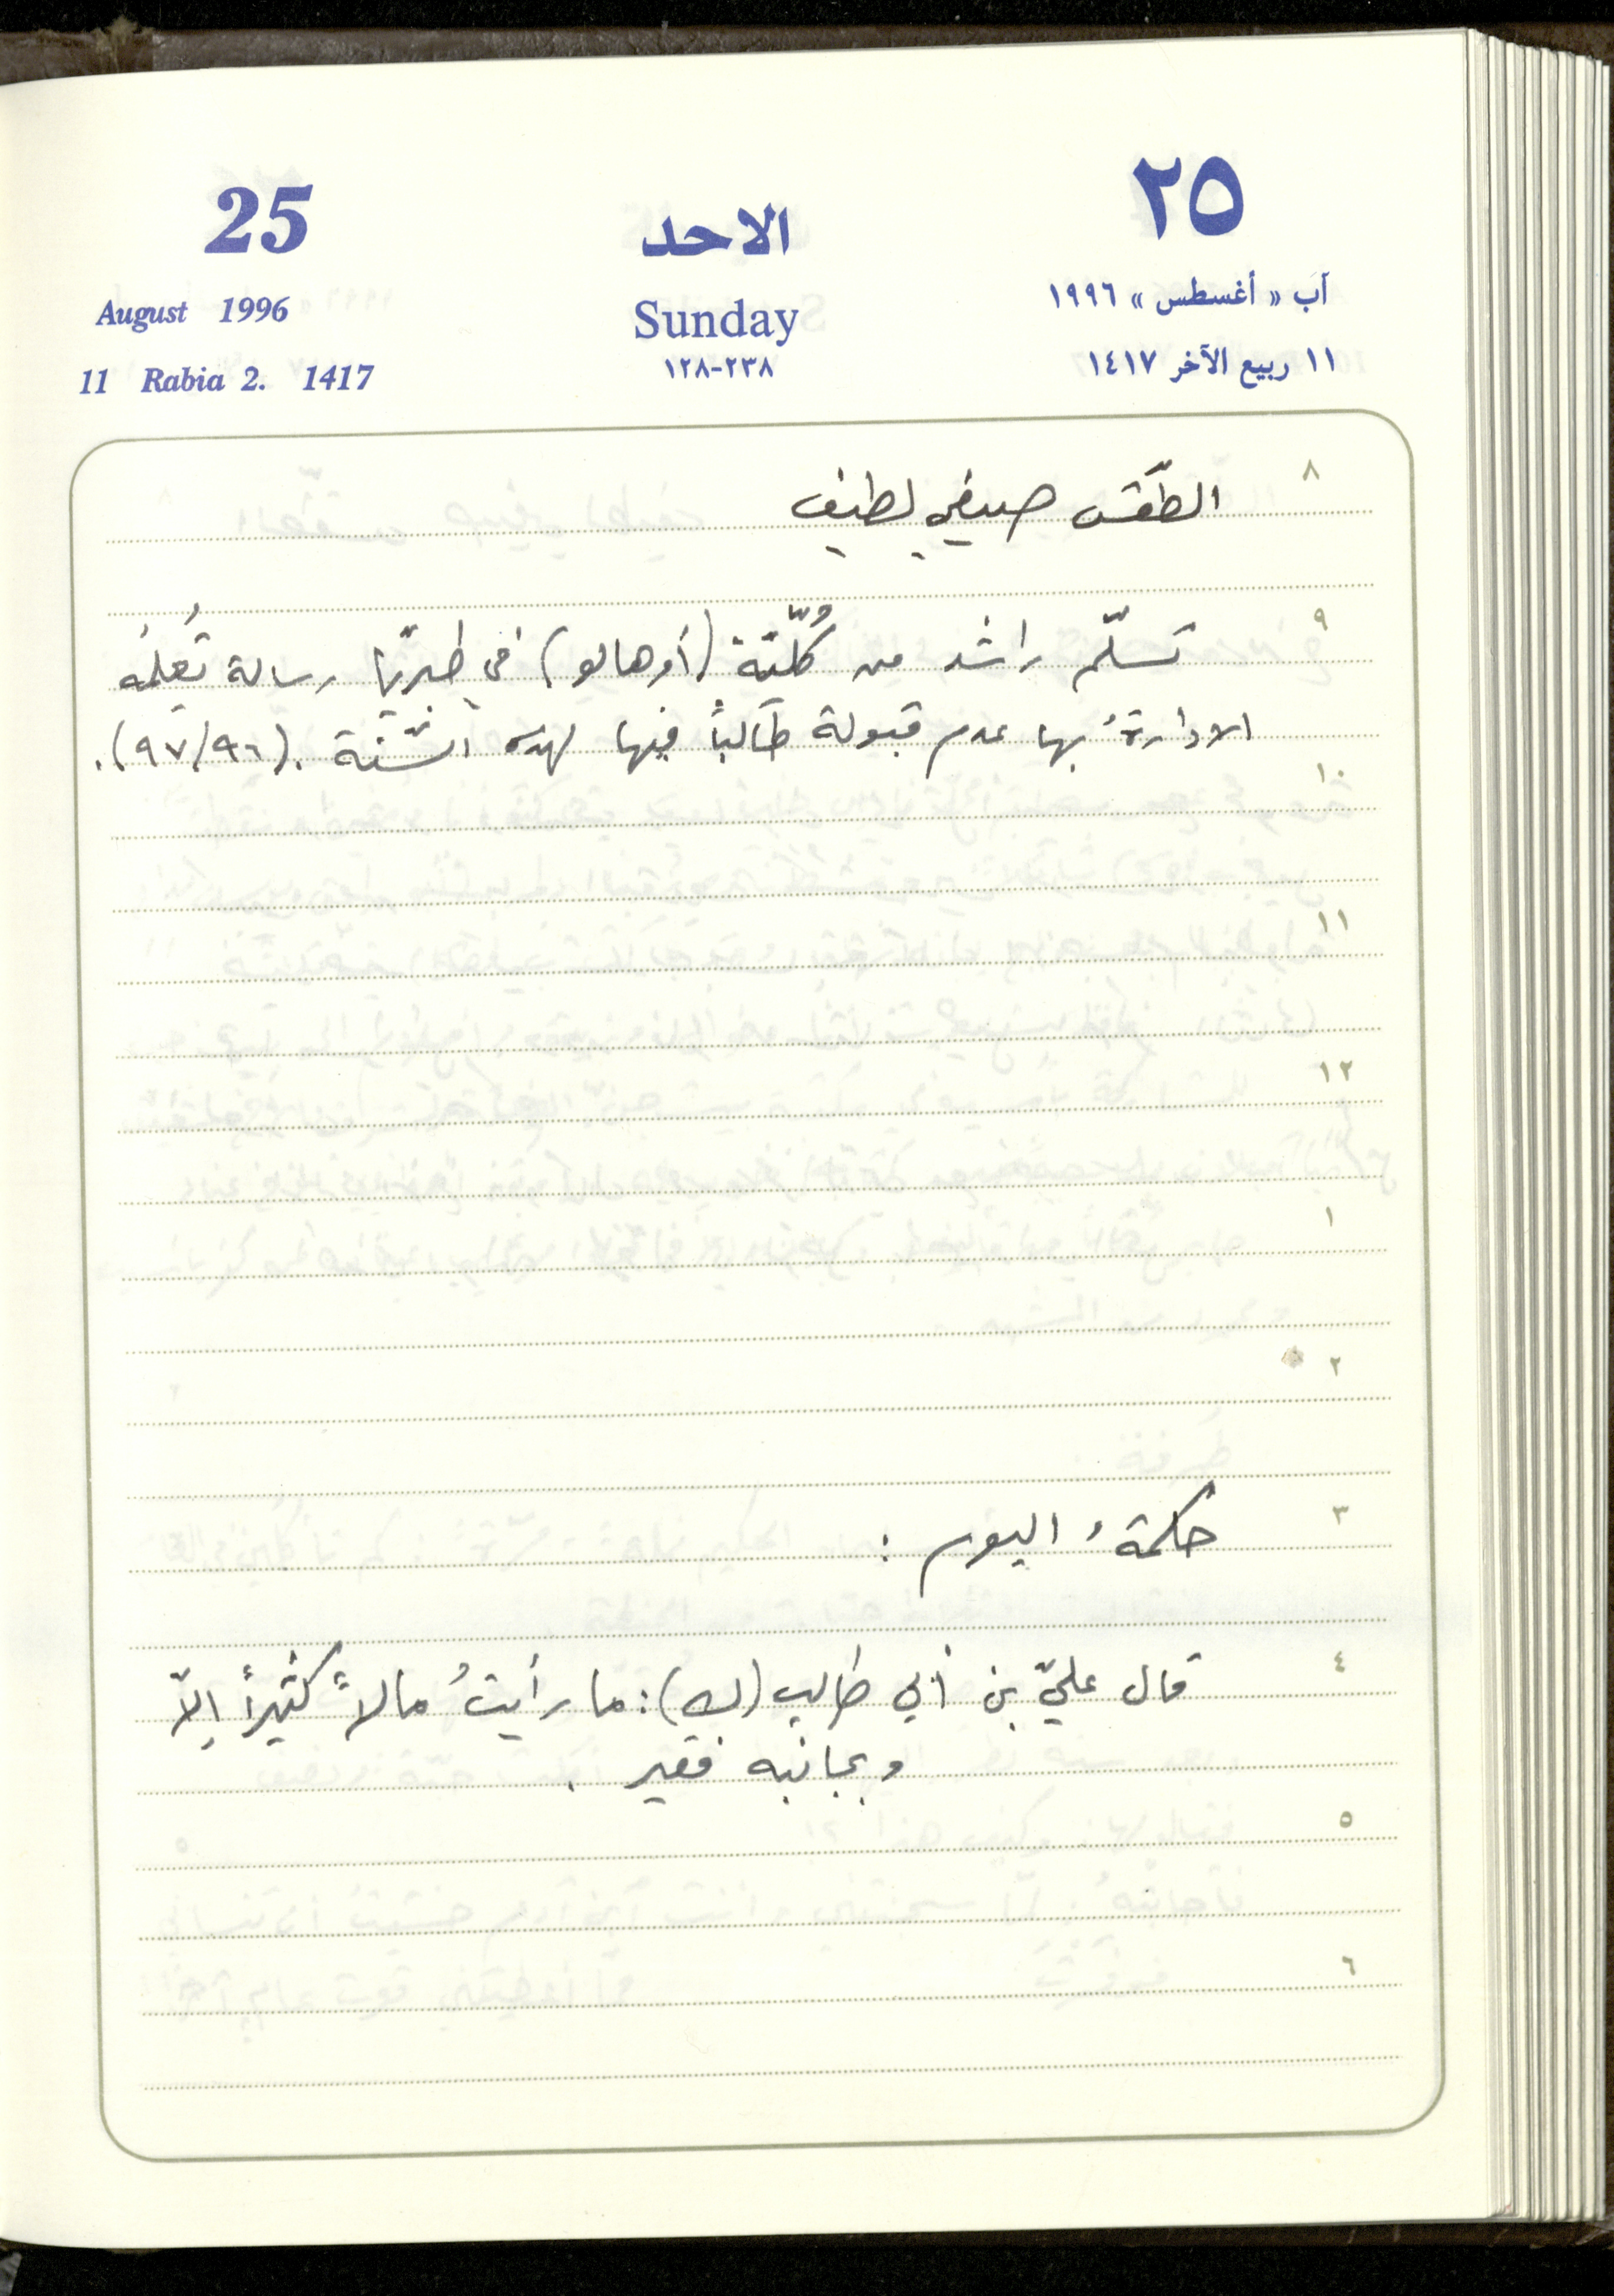 25 الاحد ٢٥
August 1996 Sunday آب « أغسطس » ١٩٩٦
11 Rabia 2. 1417 ١٢٨-٢٣٨ ١١ ربيع الآخر ١٤١٧
٨
الطّقس صيفي لطيف
٩
تسلّم راشد من كُلّيّة (أوهالو) في طبريّا رسالة تُعلمُه
الادارةُ بها عدم قبولة طالباً فيها لهذه السّنة (٩٧/٩٦).
١٠
١١
١٢
١
٢
٣
حكمةُ اليوم :
٤
قال عليّ بن أبي طالب (): ما رأيتُ مالاً كثيراً إلاّ
وبجانبه فقير .
٥
٦